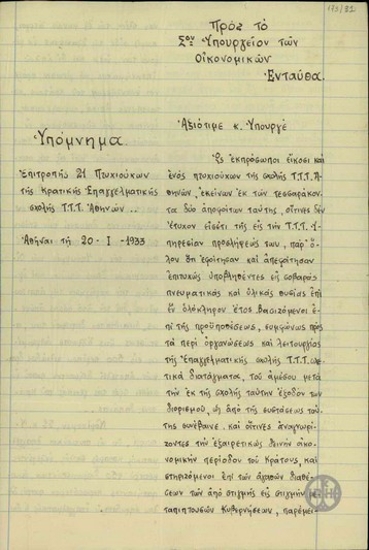 173/82
Πρὸς τὸ
Σον Ὑπουργεῖον τῶν
Οἰκονομικῶν
Ἐνταῦθα.
Ὑπόμνημα
Ἐπιτροπῆς 21 Πτυχιούχων
τῆς Κρατικῆς Ἐπαγγελματικῆς
σχολῆς Τ.Τ.Τ. Ἀθηνῶν..
Ἀθῆναι τῇ 20-I-1933
Ἀξιότιμε κ. Ὑπουργέ
Ὡς ἐκπρόσωποι εἴκοσι καὶ
ἑνὸς πτυχιούχων τῆς σχολῆς Τ.Τ.Τ. Ἀ-
θηνῶν, ἐκείνων ἐκ τῶν τεσσαράκον-
τα δύο ἀποφοίτων ταύτης, οἵτινες δὲν
ἔτυχον εἰσέτι τῆς εἰς τὴν Τ.Τ.Τ. Ὑ-
πηρεσίαν προσλήψεώς των, παρ' ὅ-
λον ὅτι ἐφοίτησαν καὶ ἀπεφοίτησαν
ἐπιτυχῶς ὑποβληθέντες εἰς σοβαρὰς
πνευματικὰς καὶ ὑλικὰς θυσίας ἐπὶ
ἓν ὁλόκληρον ἔτος, βασιζόμενοι ἐ-
πὶ τῆς προϋποθέσεως, συμφώνως πρὸς
τὰ περὶ ὀργανώσεως καὶ λειτουργίας
τῆς Ἐπαγγελματικῆς σχολῆς Τ.Τ.Τ.
τικὰ διατάγματα, τοῦ ἀμέσου μετὰ
τὴν ἐκ τῆς σχολῆς ταύτης ἔξοδον των
διορισμοῦ, ὡς ἀπὸ τῆς συστάσεως ταύ-
της συνέβαινε. καὶ οἵτινες ἀναγνωρί-
ζοντες τὴν ἐξαιρετικῶς δεινὴν οἰκο-
νομικὴν περίοδον τοῦ Κράτους, καὶ
στηριζόμενοι ἐπὶ τῶν ἀγαθῶν διαθέ-
σεων τῶν ἀπὸ στιγμῆς εἰς στιγμὴν με-
ταπιπτουσῶν Κυβερνήσεων, παρέμει-